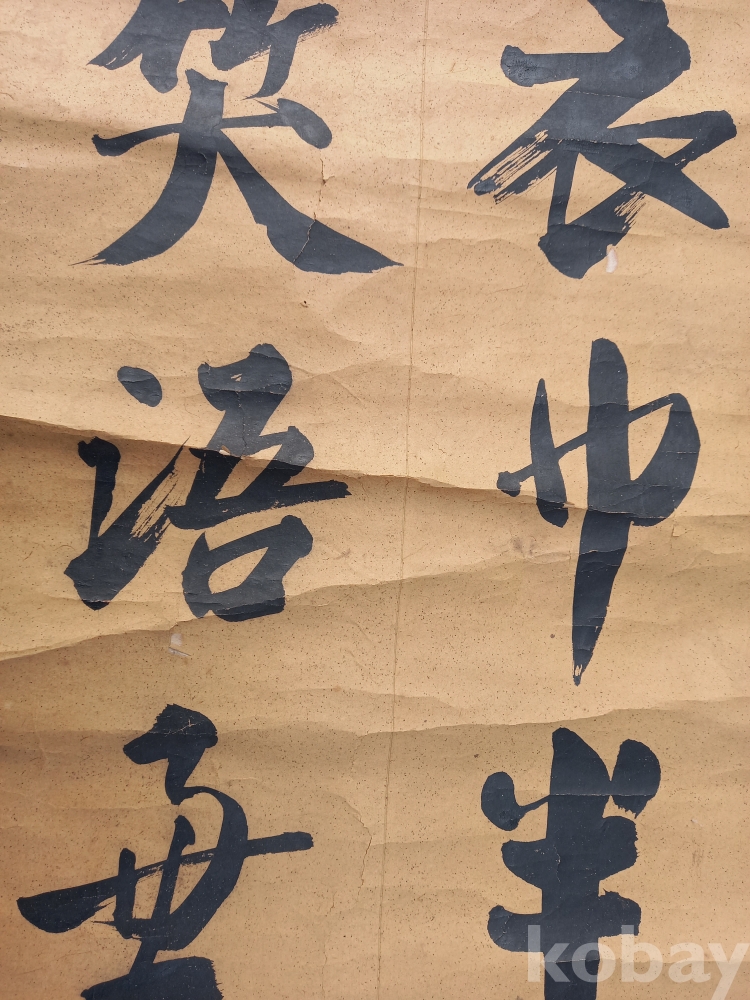 衣巾半
笑語兼
kobay